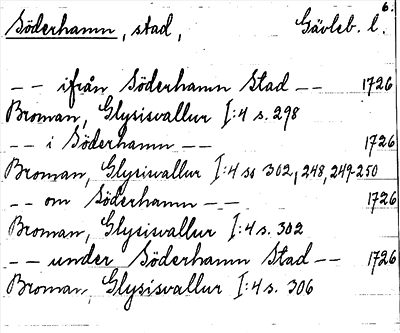 6.
Söderhamn, stad, Gävleb. l.
-- ifrån Söderhamn Stad -- 1726
Broman, Glysisvallur I:4 s. 298
-- i Söderhamn -- 1726
Broman, Glysisvallur I:4 ss 302, 248, 249-250
-- om Söderhamn -- 1726
Broman, Glysisvallur I:4 s. 302
-- under Söderhamn Stad -- 1726
Broman, Glysisvallur I:4 s. 306